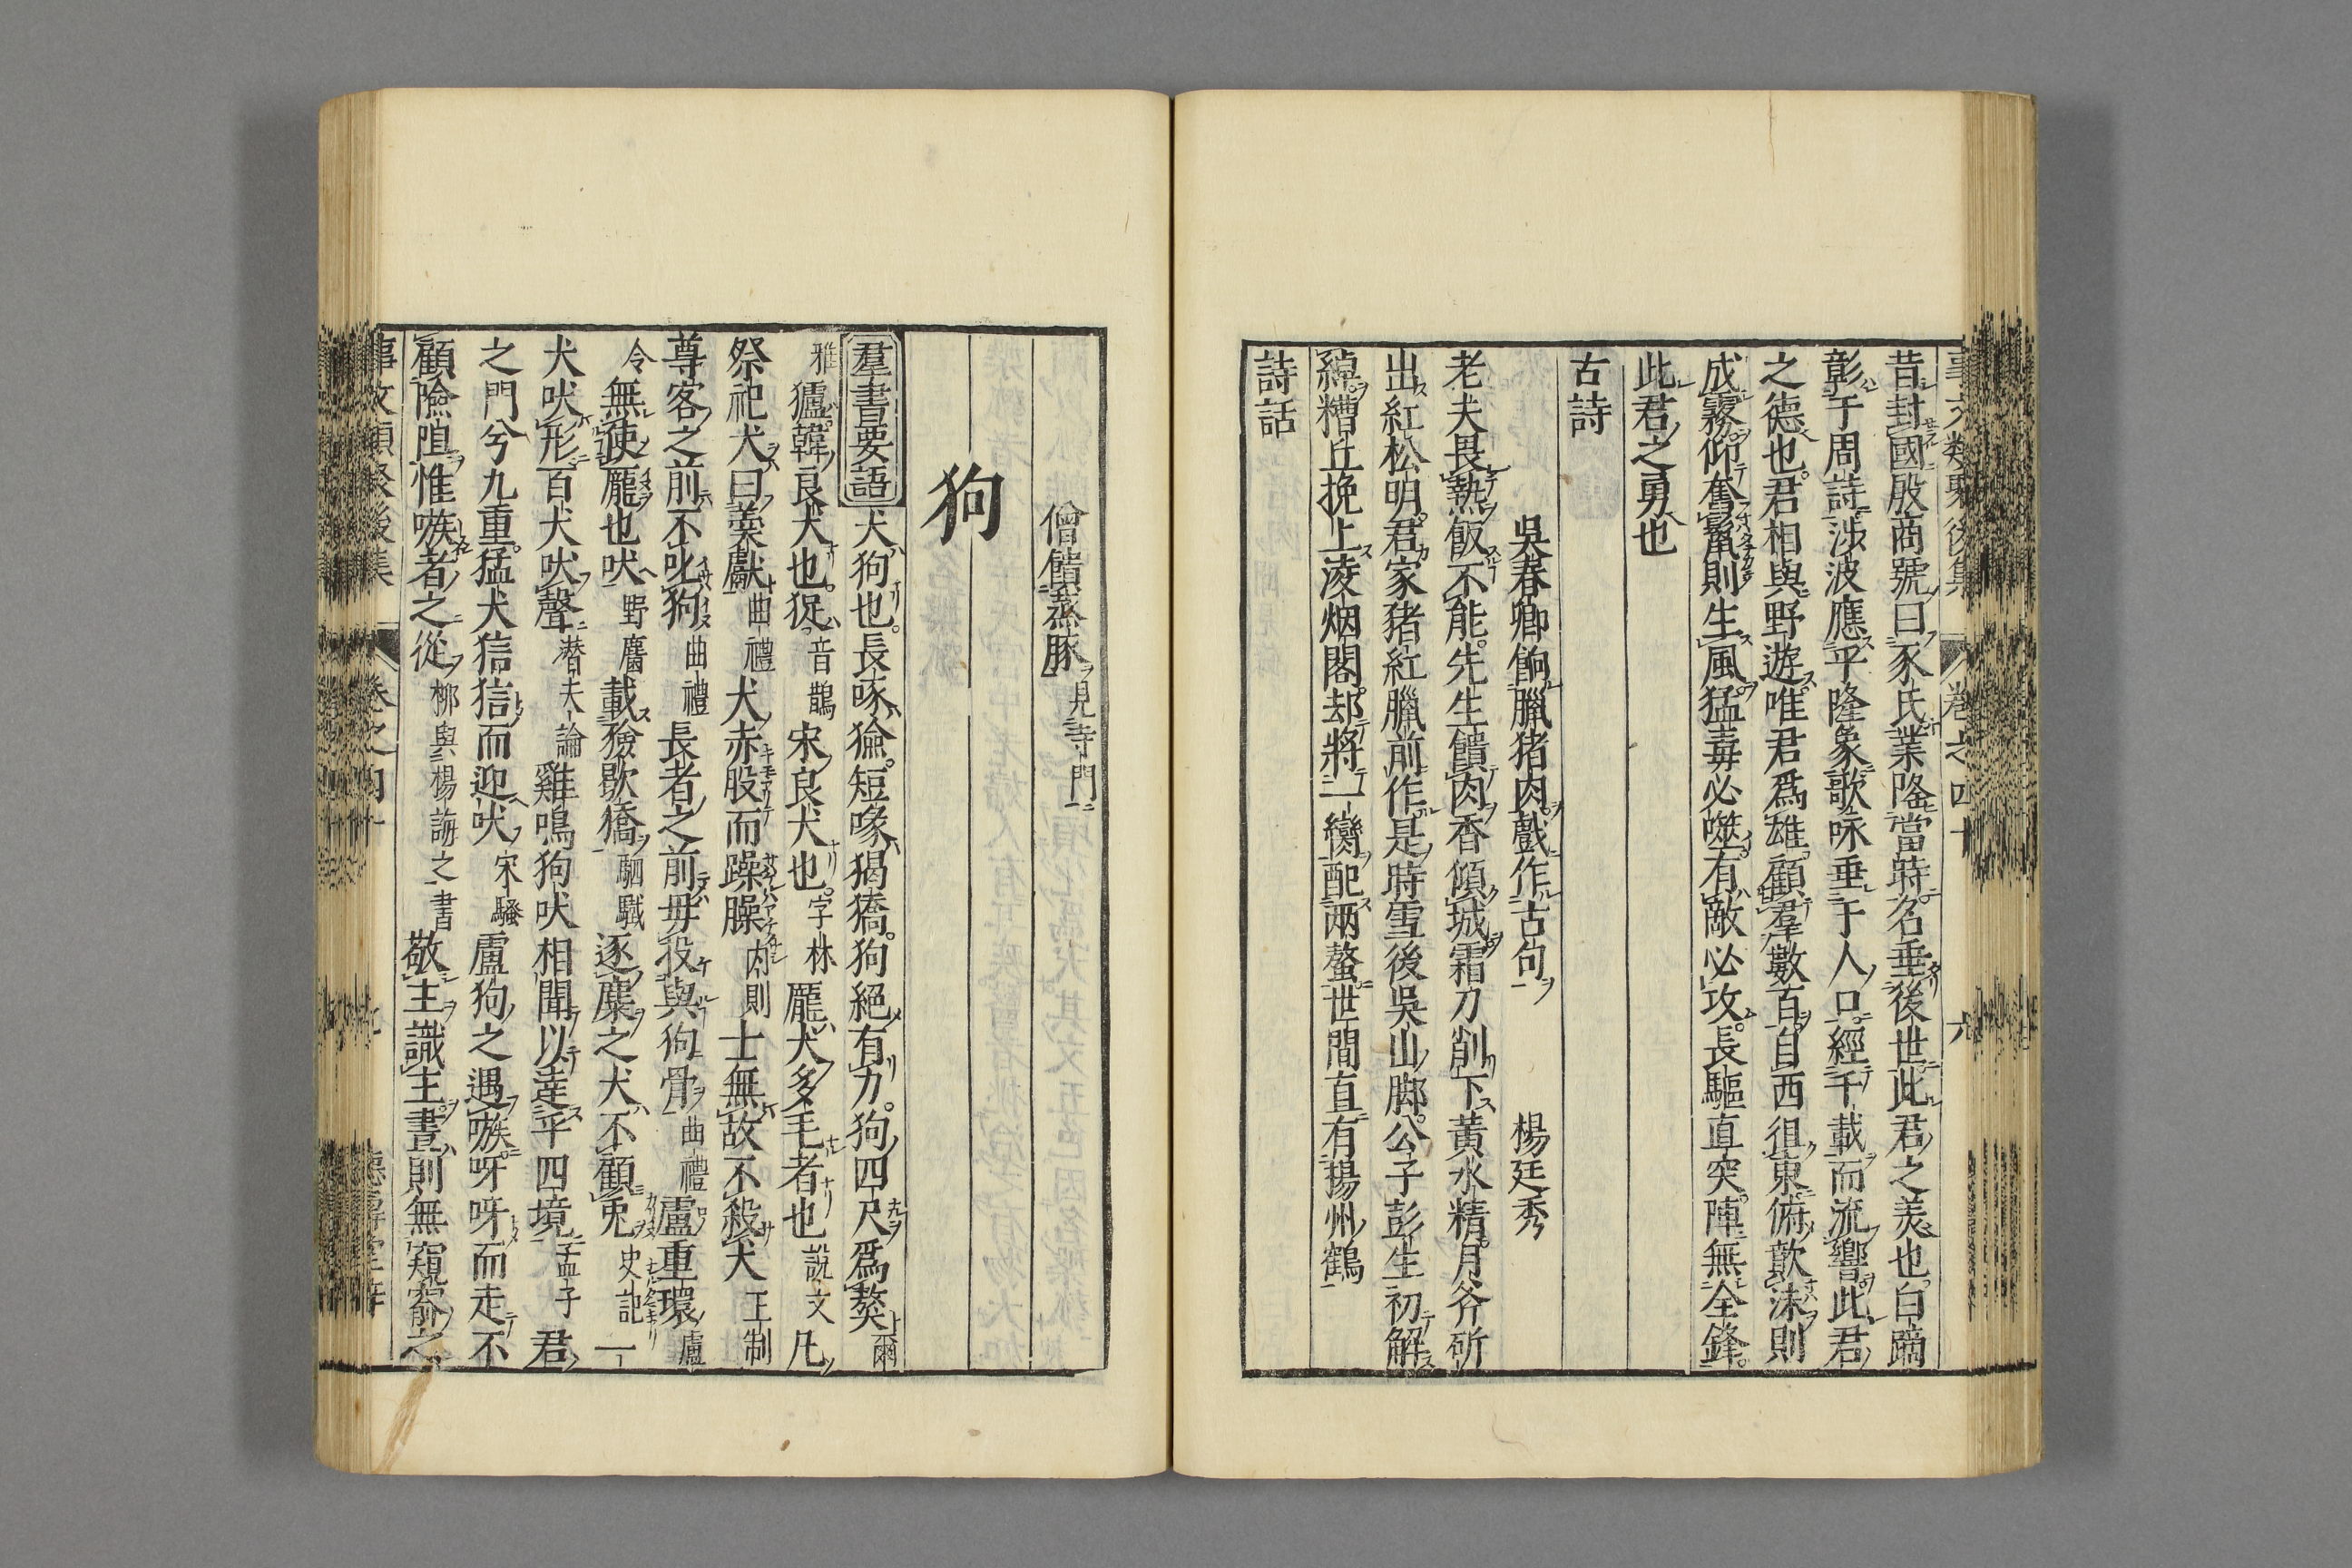 昔封國殷商號曰豕氏業隆當時名垂後世此君之美也白蹢
彰于周詩涉波應乎隆象歌咏垂于人口經千載而流響此君
之德也君相與野遊唯君爲雄顧羣數百自西徂東俯歕沫則
成霧仰奮鬣則生風猛毒必噬有敵必攻長驅直突陣無全鋒
此君之勇也
古詩
吳春卿餉臘猪肉戲作古句 楊廷秀
老夫畏熱飯不能先生饋肉香傾城霜刀削下黃水精月斧斫
出紅松明君家猪紅臘前作是時雪後吳山脚公子彭生初解
綽糟丘挽上凌烟閣却將一臠配兩螯世間直有揚州鶴
詩話
僧饋蒸豚見寺門
狗
羣書要語 犬狗也長啄獫短喙猲獢狗絕有力狗四尺爲獒爾
雅 獹韓良犬也猑音鵲宋良犬也字林厖犬多毛者也說文凡
祭祀犬曰羹獻曲禮犬赤股而躁臊內則士無故不殺犬王制
尊客之前不叱狗曲禮長者之前毋投與狗骨曲禮盧重環盧
令無使厖也吠野麕載獫歇獢駟驖逐麋之犬不顧兎史記一
犬吠形百犬吠聲潛夫論雞鳴狗吠相聞以達乎四境孟子君
之門兮九重猛犬狺狺而迎吠宋騷盧狗之遇嗾呀呀而走不
顧險阻惟嗾者之從柳與楊誨之書敬主識主晝則無窺窬之
事文類聚後集 卷之四十